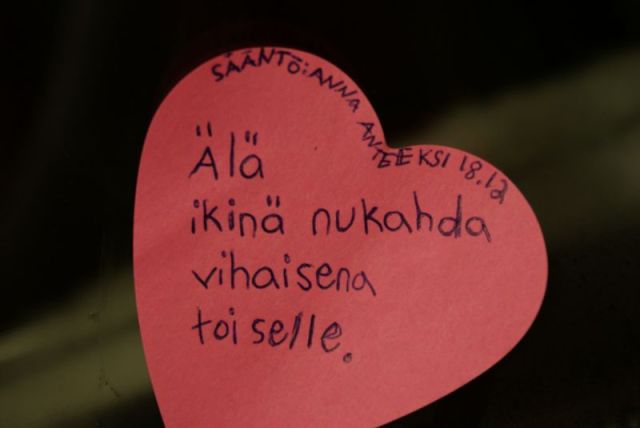 SÄÄNTÖ: ANNA ANTEEKSI 18.12
Älä
ikinä nukahda
vihaisena
toiselle.